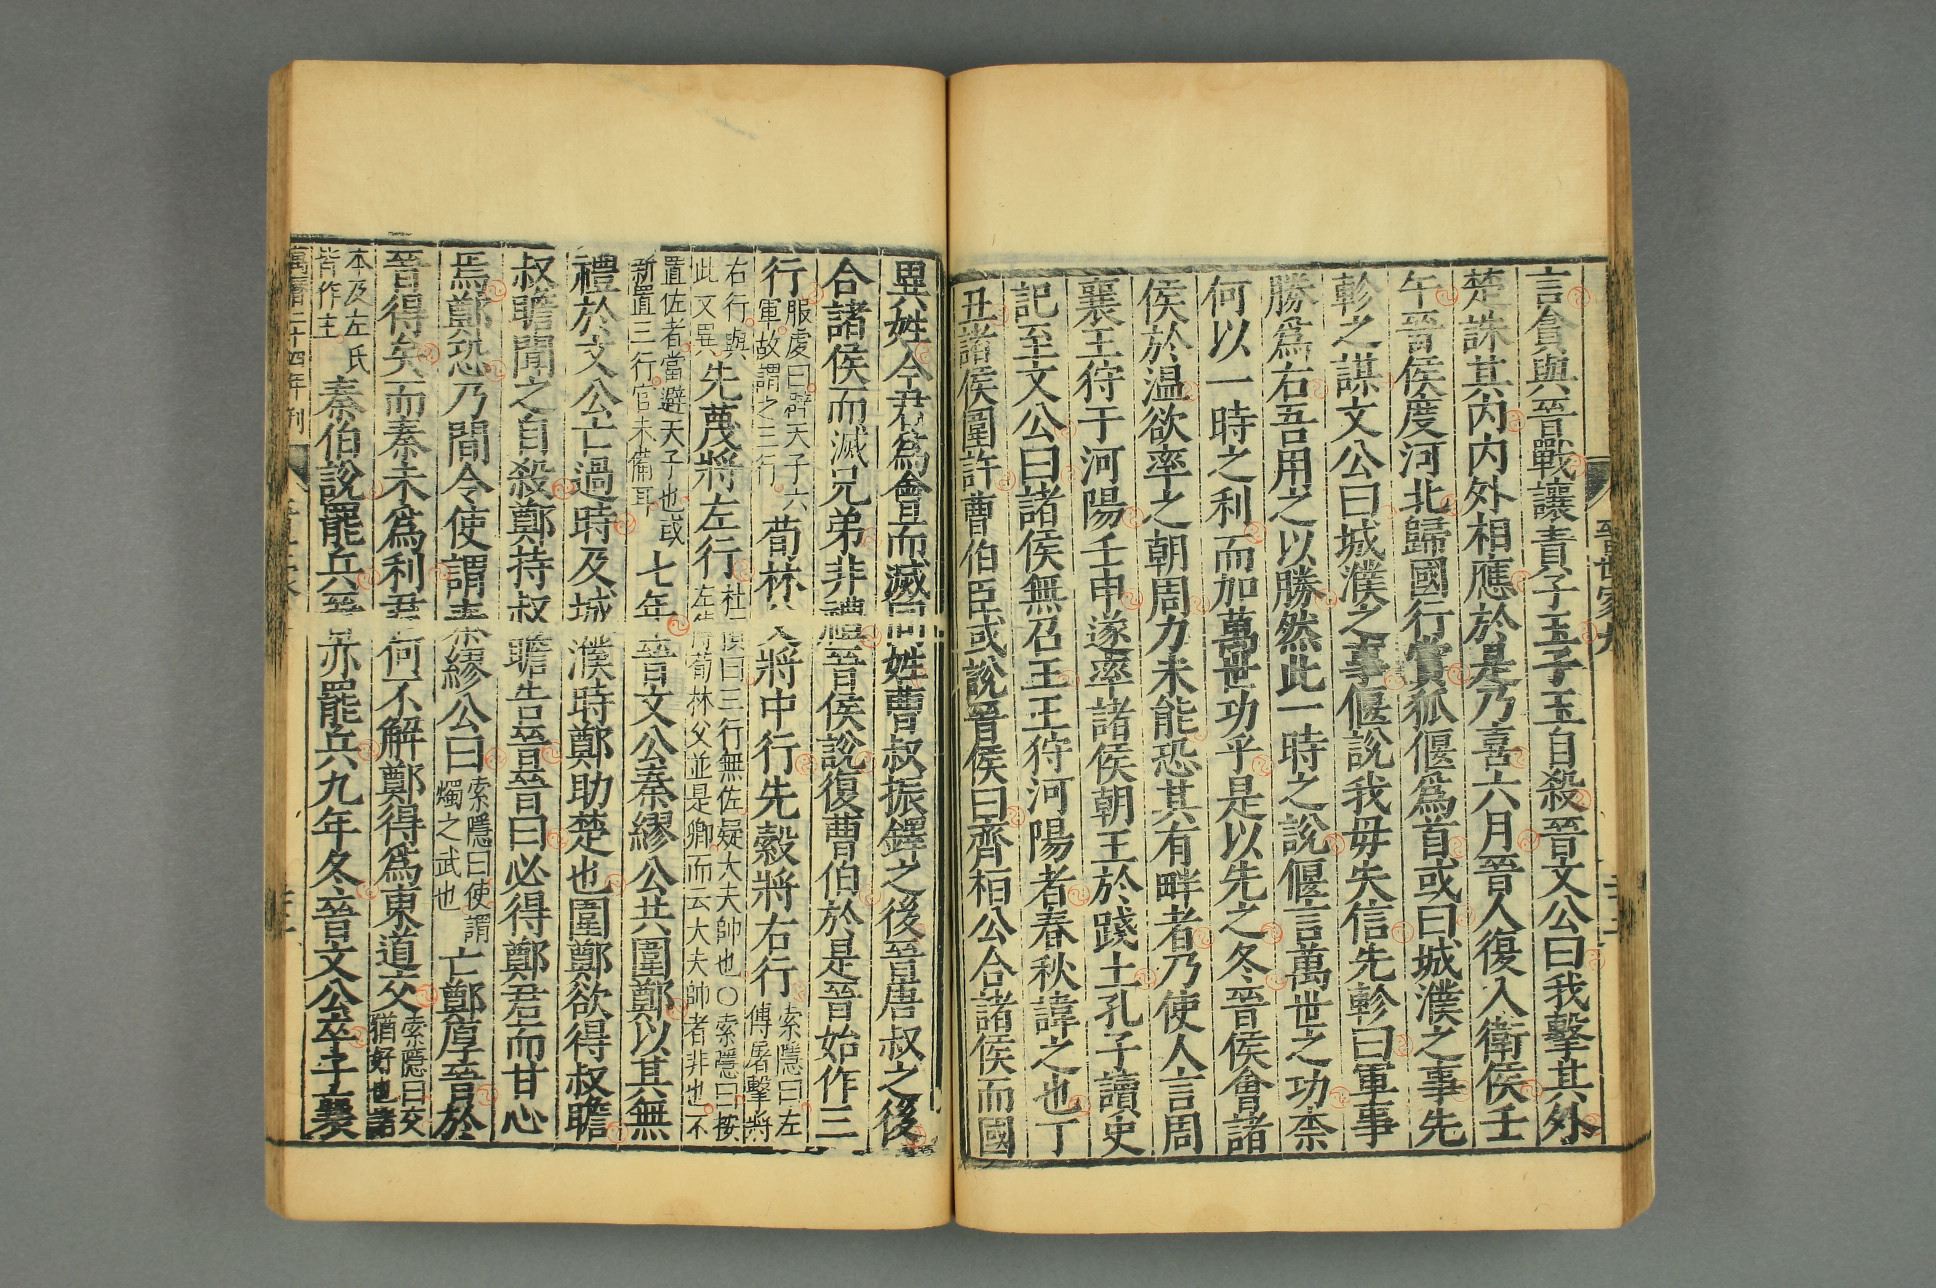 言貪與晉戰讓責子玉子玉自殺晉文公曰我擊其外
楚誅其內內外相應於是乃喜六月晉人復入衛侯壬
午晉侯度河北歸國行賞狐偃為首或曰城濮之事先
軫之謀文公曰城濮之事偃說我毋失信先軫曰軍事
勝為右吾用之以勝然此一時之說偃言萬世之功柰
何以一時之利而加萬世功乎是以先之冬晉侯會諸
侯於温欲率之朝周力未能恐其有畔者乃使人言周
襄王狩于河陽壬申遂率諸侯朝王於踐土孔子讀史
記至文公曰諸侯無召王王狩河陽者春秋諱之也丁
丑諸侯圍許曹伯臣或說晉侯曰齊桓公合諸侯而國
晉世家九
異姓今君為會而滅同姓曹叔振鐸之後晉唐叔之後
合諸侯而滅兄弟非禮晉侯說復曹伯於是晉始作三
行服虔曰辟天子六軍故謂之三行荀林父將中行先縠將右行索隱曰左傳屠擊將
右行與此文異先蔑將左行杜預曰三行無佐疑大夫帥也○索隱曰按左傳荀林父並是卿而云大夫帥者非也不
置佐者當避天子也或新置三行官未備耳七年晉文公秦繆公共圍鄭以其無
禮於文公亡過時及城濮時鄭助楚也圍鄭欲得叔瞻
叔瞻聞之自殺鄭持叔瞻告晉晉曰必得鄭君而甘心
焉鄭恐乃間令使謂秦繆公曰索隱曰使謂燭之武也亡鄭厚晉於
晉得矣而秦未為利君何不解鄭得為東道交索隱曰交猶好也諸
本及左氏皆作主秦伯說罷兵晉亦罷兵九年冬晉文公卒子襄
萬曆二十四年刊